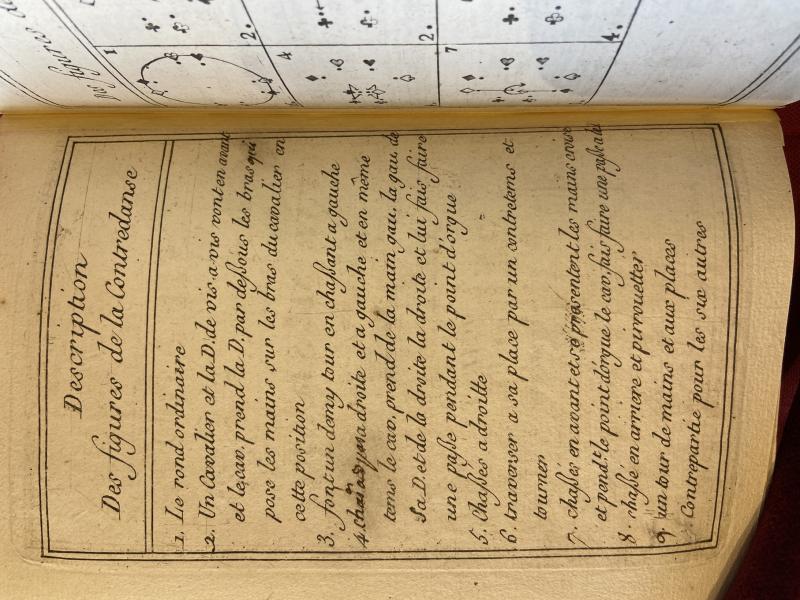 Description
Des figures de la Contredanse
1. Le rond ordinaire
2. Un Cavalier et la D. de vis-a-vis vont en avant
et le cav. prend la D. par dessous les bras qui
pose les mains sur les bras du cavalier en
cette position
3. font un demy tour en chassant a gauche
4. a droite et a gauche et en même
tems le cav. prend de la main gau. la gau. de
sa D. et de la droite la droite et lui fais faire
une passe pendant le point d'orgue
5. Chassés a droitte
6. traverser a sa place par un contretems et
tourner
7. chassés en avant et se présentent les mains croisé
et pendt. le point d'orgue le cav. fais faire une passe a la
8. chassé en arriere et pirouetter
9. un tour de mains et aux places
Contrepartie pour les six autres
des figures de
1
2.
4
2.
7
4.